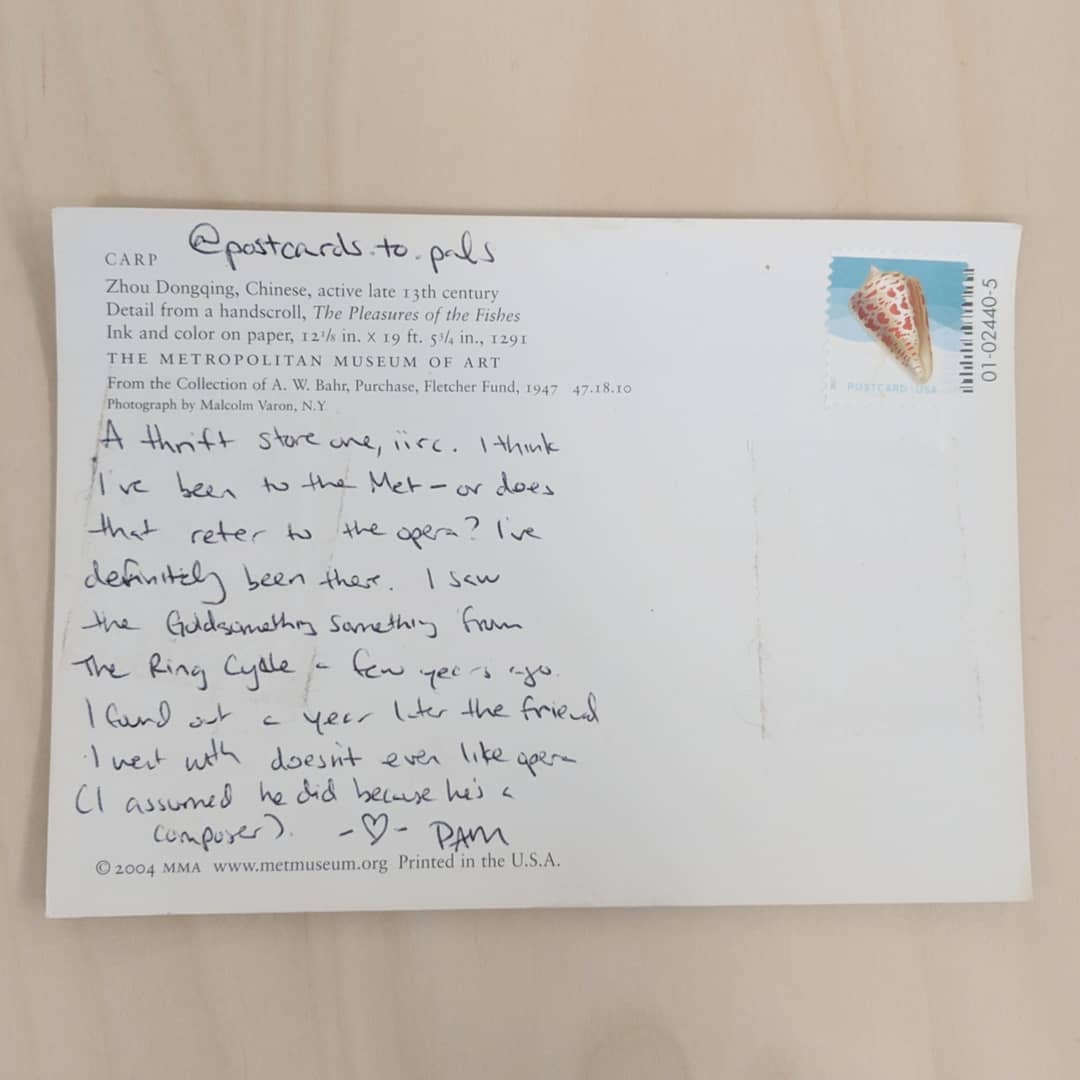 @postcards.to.pals
CARP
Zhou Dongqing, Chinese, active late 13th century
Detail from a handscroll, The Pleasures of the Fishes
Ink and color on paper, 12 1/8 in. x 19 ft. 5 3/4 in., 1291
THE METROPOLITAN MUSEUM OF ART
From the Collection of A. W. Bahr, Purchase, Fletcher Fund, 1947 47.18.10
Photograph by Malcolm Varon, N.Y
A thrift store one, iirc. I think
I've been to the Met – or does
that refer to the opera? I've
definitely been there. I saw
the Goldsomething something from
The Ring Cycle a few years ago.
I found out a year later the friend
I went with doesn't even like opera
(I assumed he did because he's a
composer). -♡- PAM
© 2004 MMA www.metmuseum.org Printed in the U.S.A.
POSTCARD USA
01-02440-5